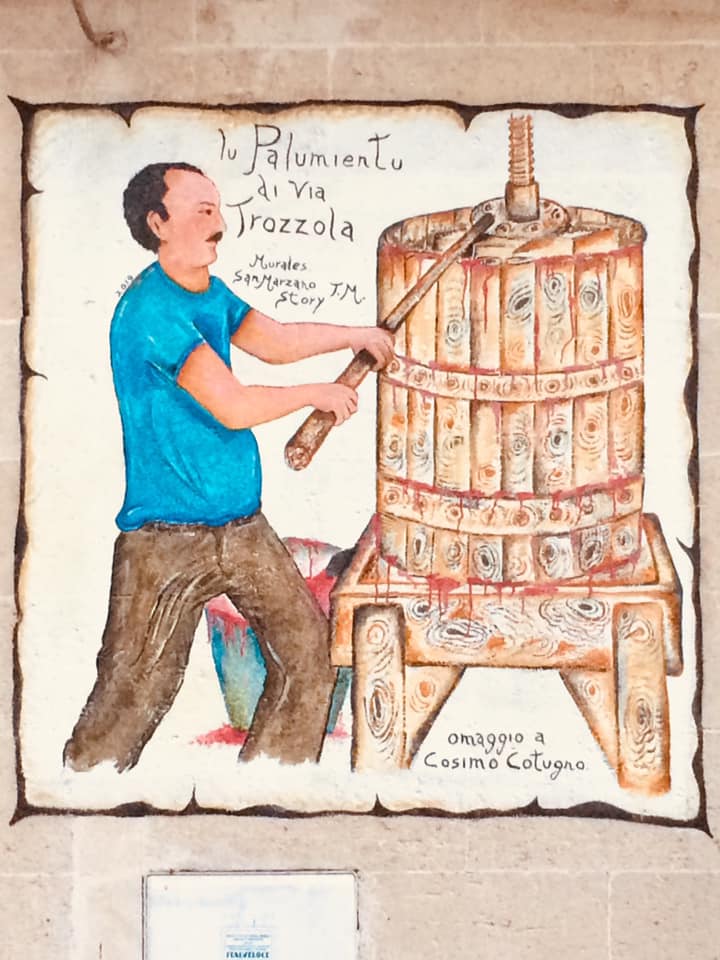 lu Palumientu
di Via
Trozzola
Murales
SanMarzano T.M.
Story
2019
omaggio a
Cosimo Cotugno
ITALVELOCE